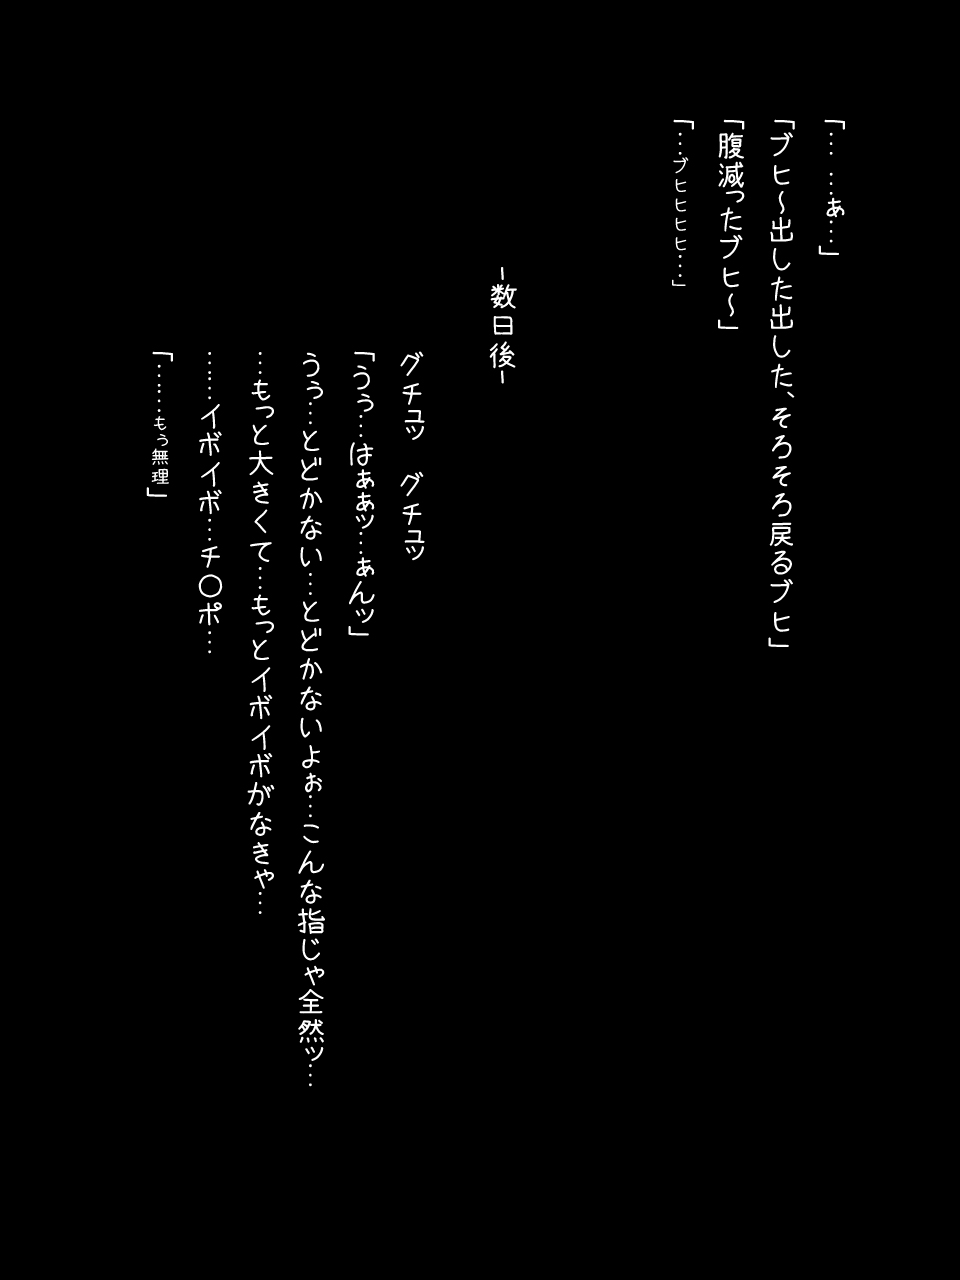 「… …あ…」
「ブヒ～出した出した、そろそろ戻るブヒ」
「腹減ったブヒ～」
「…ブヒヒヒヒ…」
-数日後-
グチュッ グチュッ
「うぅ…はぁぁッ…ぁんッ」
うぅ…とどかない…とどかないよぉ…こんな指じゃ全然ッ…
…もっと大きくて…もっとイボイボがなきゃ…
……イボイボ…チ〇ポ…
「……もぅ無理」